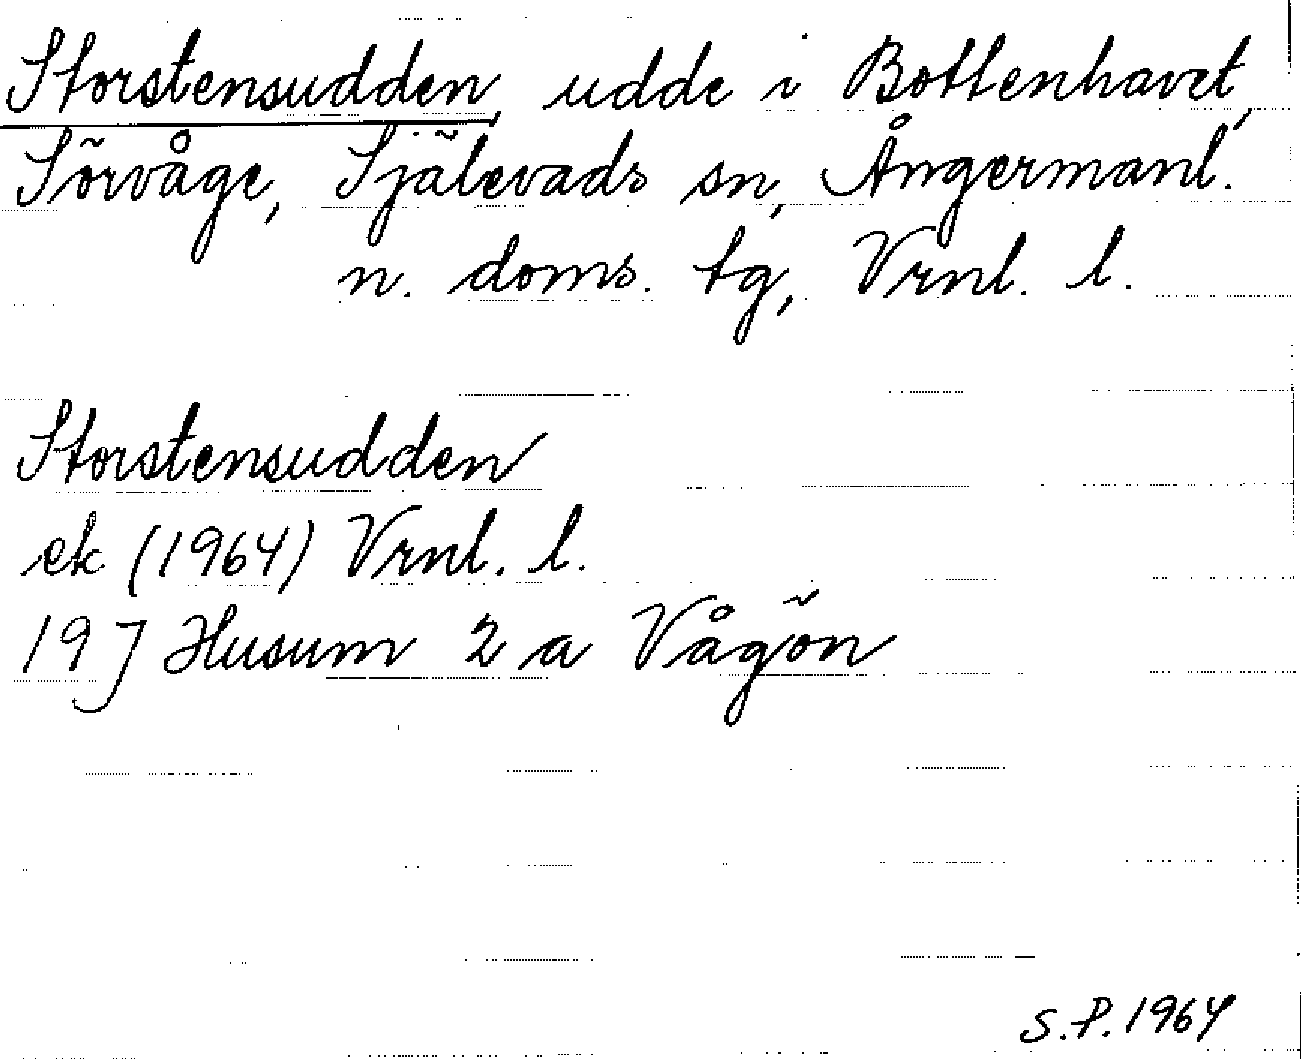 Storstensudden, udde i Bottenhavet,
Sörvåge, Själevads sn, Ångermanl.
n. doms. tg, Vrnl. l.
Storstensudden
ek (1964) Vrnl. l.
19 J Husum 2 a Vågön
S.P. 1964